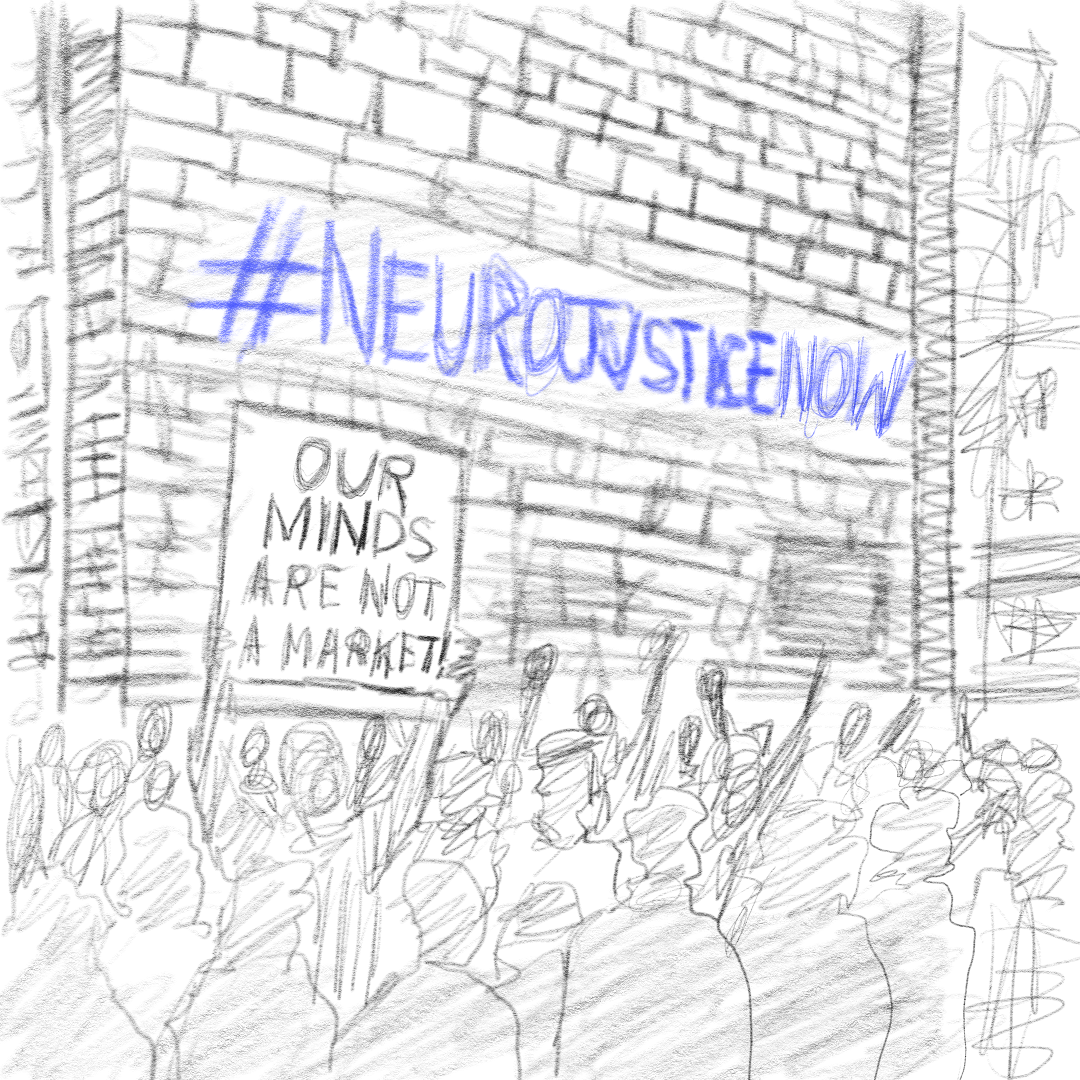 #NEUROJUSTICENOW
OUR
MINDS
ARE NOT
A MARKET!